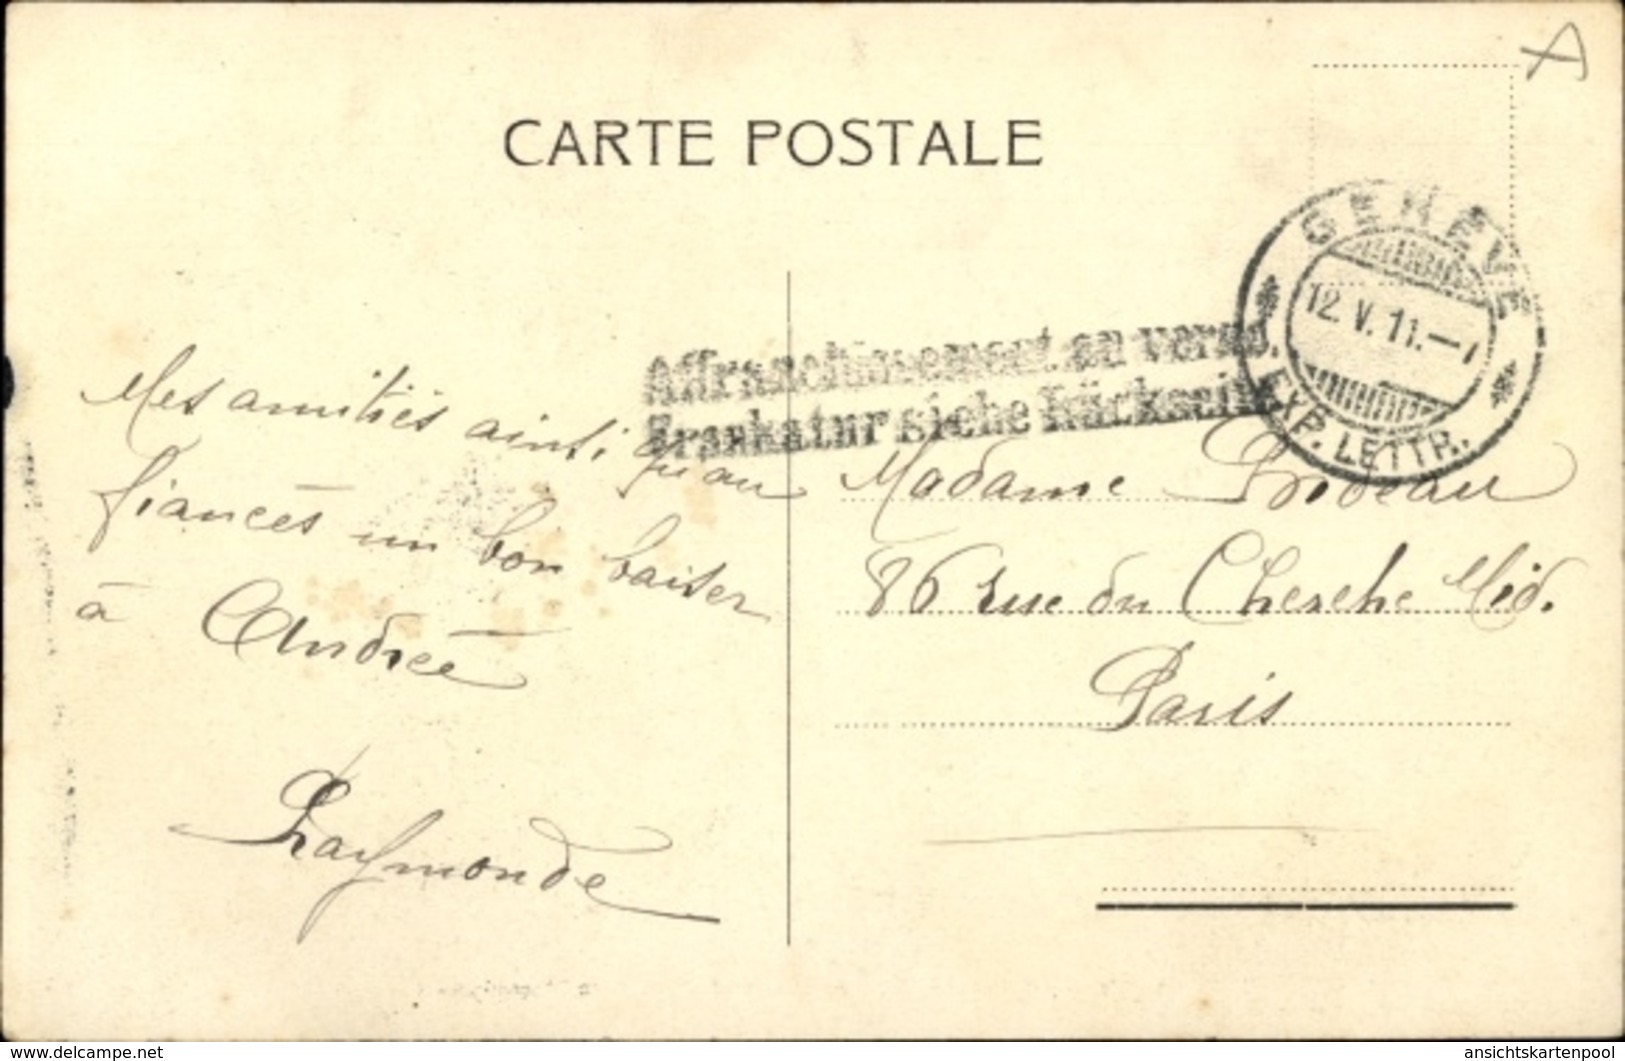 A
CARTE POSTALE
GENÈVE
12.V.11.-1
EXP. LETTR.
Affranchissement au verso.
Frankatur siehe Rückseite.
Mes amitiés ainsi qu'au
fiancés un bon baiser
à Andrée
Raymonde
Madame
86 rue du Cherche Mid.
Paris
www.delcampe.net
ansichtskartenpool